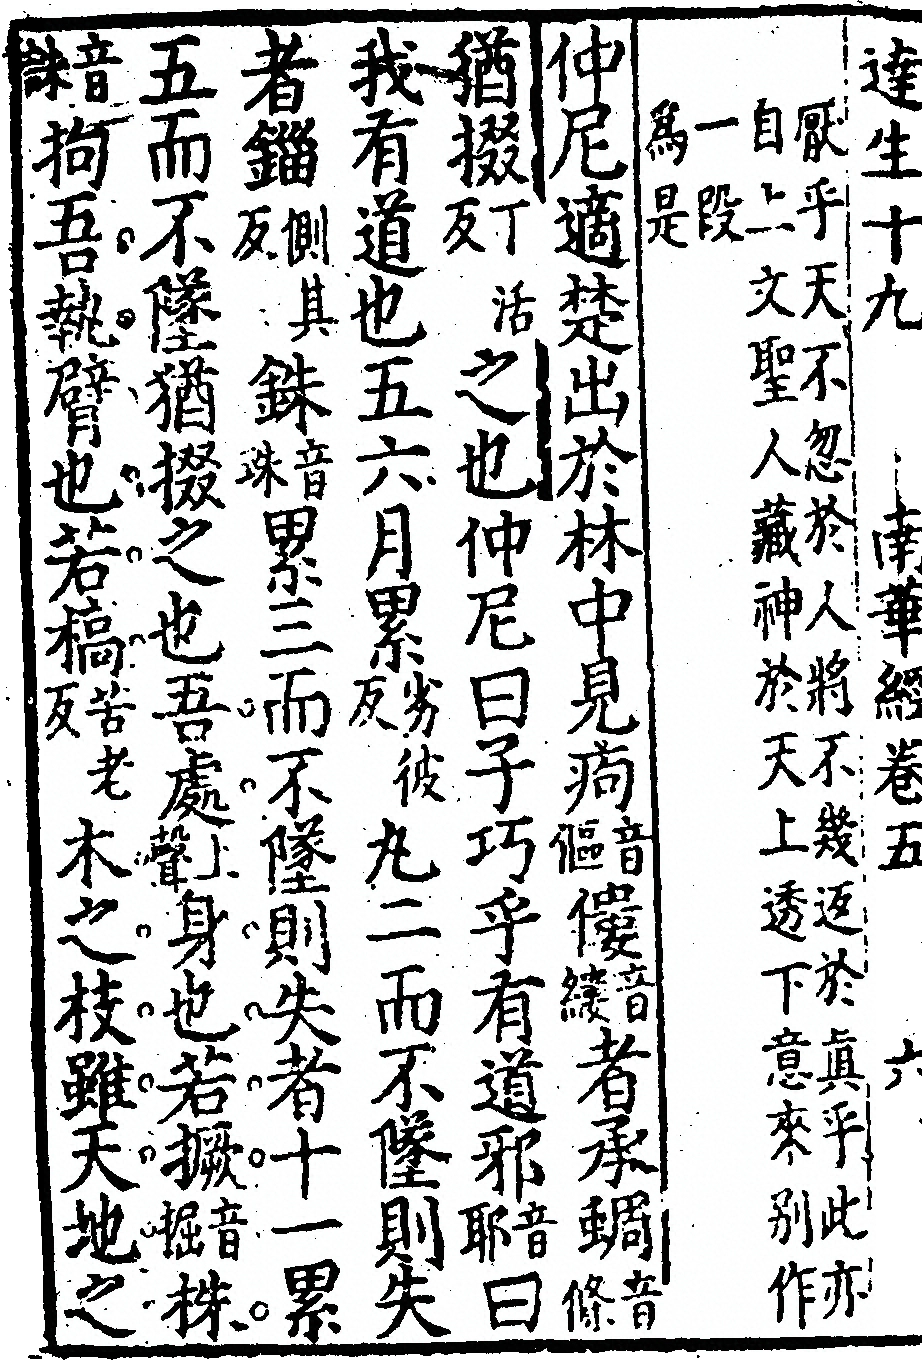 達生十九 南華經卷五 六
厭乎天不忽於人將不幾返於眞乎此亦
自上文聖人藏神於天上透下意來別作
一段
爲是
仲尼適楚出於林中見痀音傴僂音縷者承蜩音條
猶掇丁活反之也仲尼曰子巧乎有道邪音耶曰
我有道也五六月累劣彼反丸二而不墜則失
者錙側其反銖音珠累三而不墜則失者十一累
五而不墜猶掇之也吾處上聲身也若撅音掘株
音誅拘吾執臂也若槁苦老反木之枝雖天地之